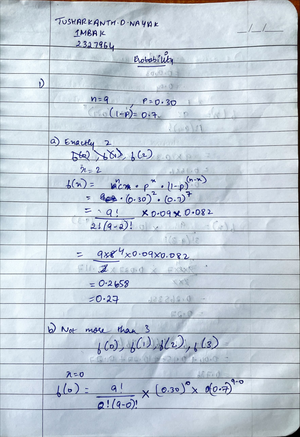 TUSHARKANTH.D.NAYAK
1MBAK
2327964
Probability
1)
n=9 P=0.30
(1-p)= 0.7
a) Exactly 2
f(0), f(1), f(2)
x=2
f(x) = nCx · p^x · (1-p)^(n-x)
= · (0.30)^2 · (0.7)^7
= 9! × 0.09 × 0.082
2!(9-2)!
= 9×8 4 ×0.09×0.082
2
= 0.2658
= 0.27
b) Not more than 3
f(0), f(1), f(2), f(3)
x=0
f(0) = 9! × (0.30)^0 × (0.7)^9-0
0!(9-0)!